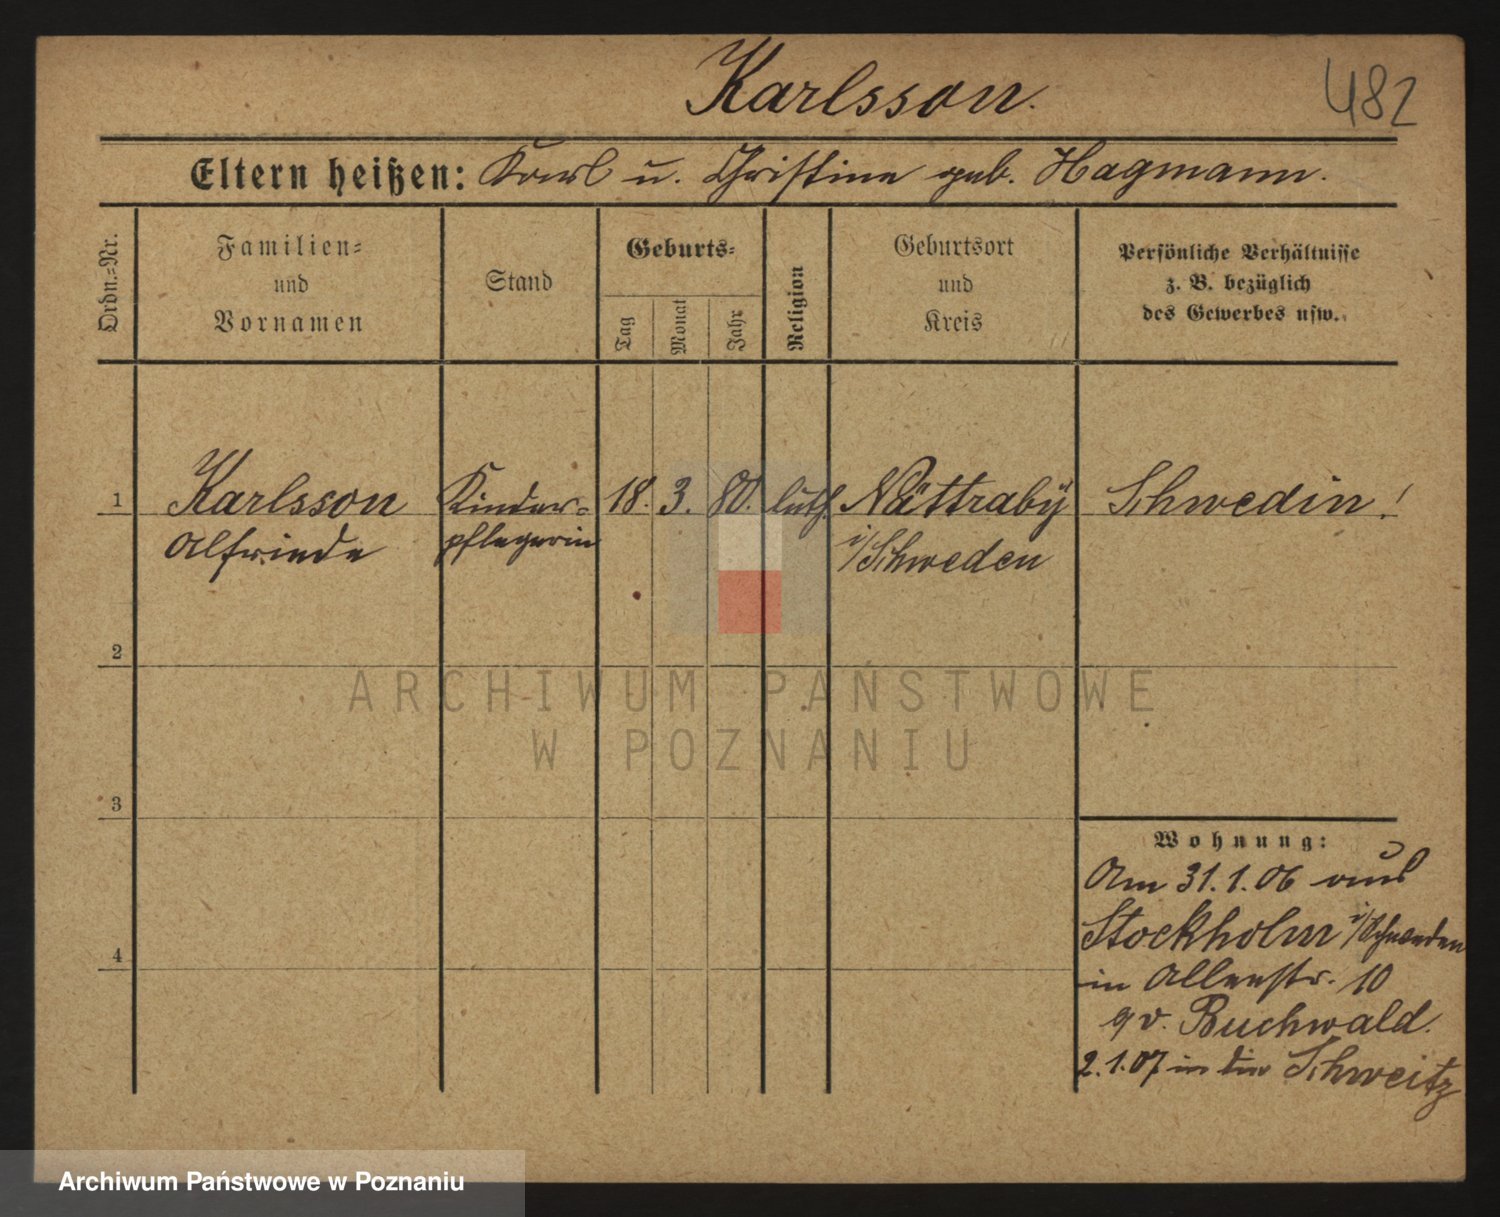 Karlsson.
482
Eltern heißen: Karl u. Christine geb. Hagmann.
Ordn.=Nr.
Familien=
und
Vornamen
Stand
Geburts=
Tag
Monat
Jahr
Religion
Geburtsort
und
Kreis
Persönliche Verhältnisse
z. B. bezüglich
des Gewerbes usw.
1 Karlsson Kinder= 18. 3. 80. luth. Nättraby Schwedin!
Alfriede pflegerin i/Schweden
2
3
4
Wohnung:
Am 31.1.06 aus
Stockholm i/Schweden
in Allerstr. 10
v. Buchwald.
2.1.07 in die Schweitz
ARCHIWUM PAŃSTWOWE
W POZNANIU
Archiwum Państwowe w Poznaniu